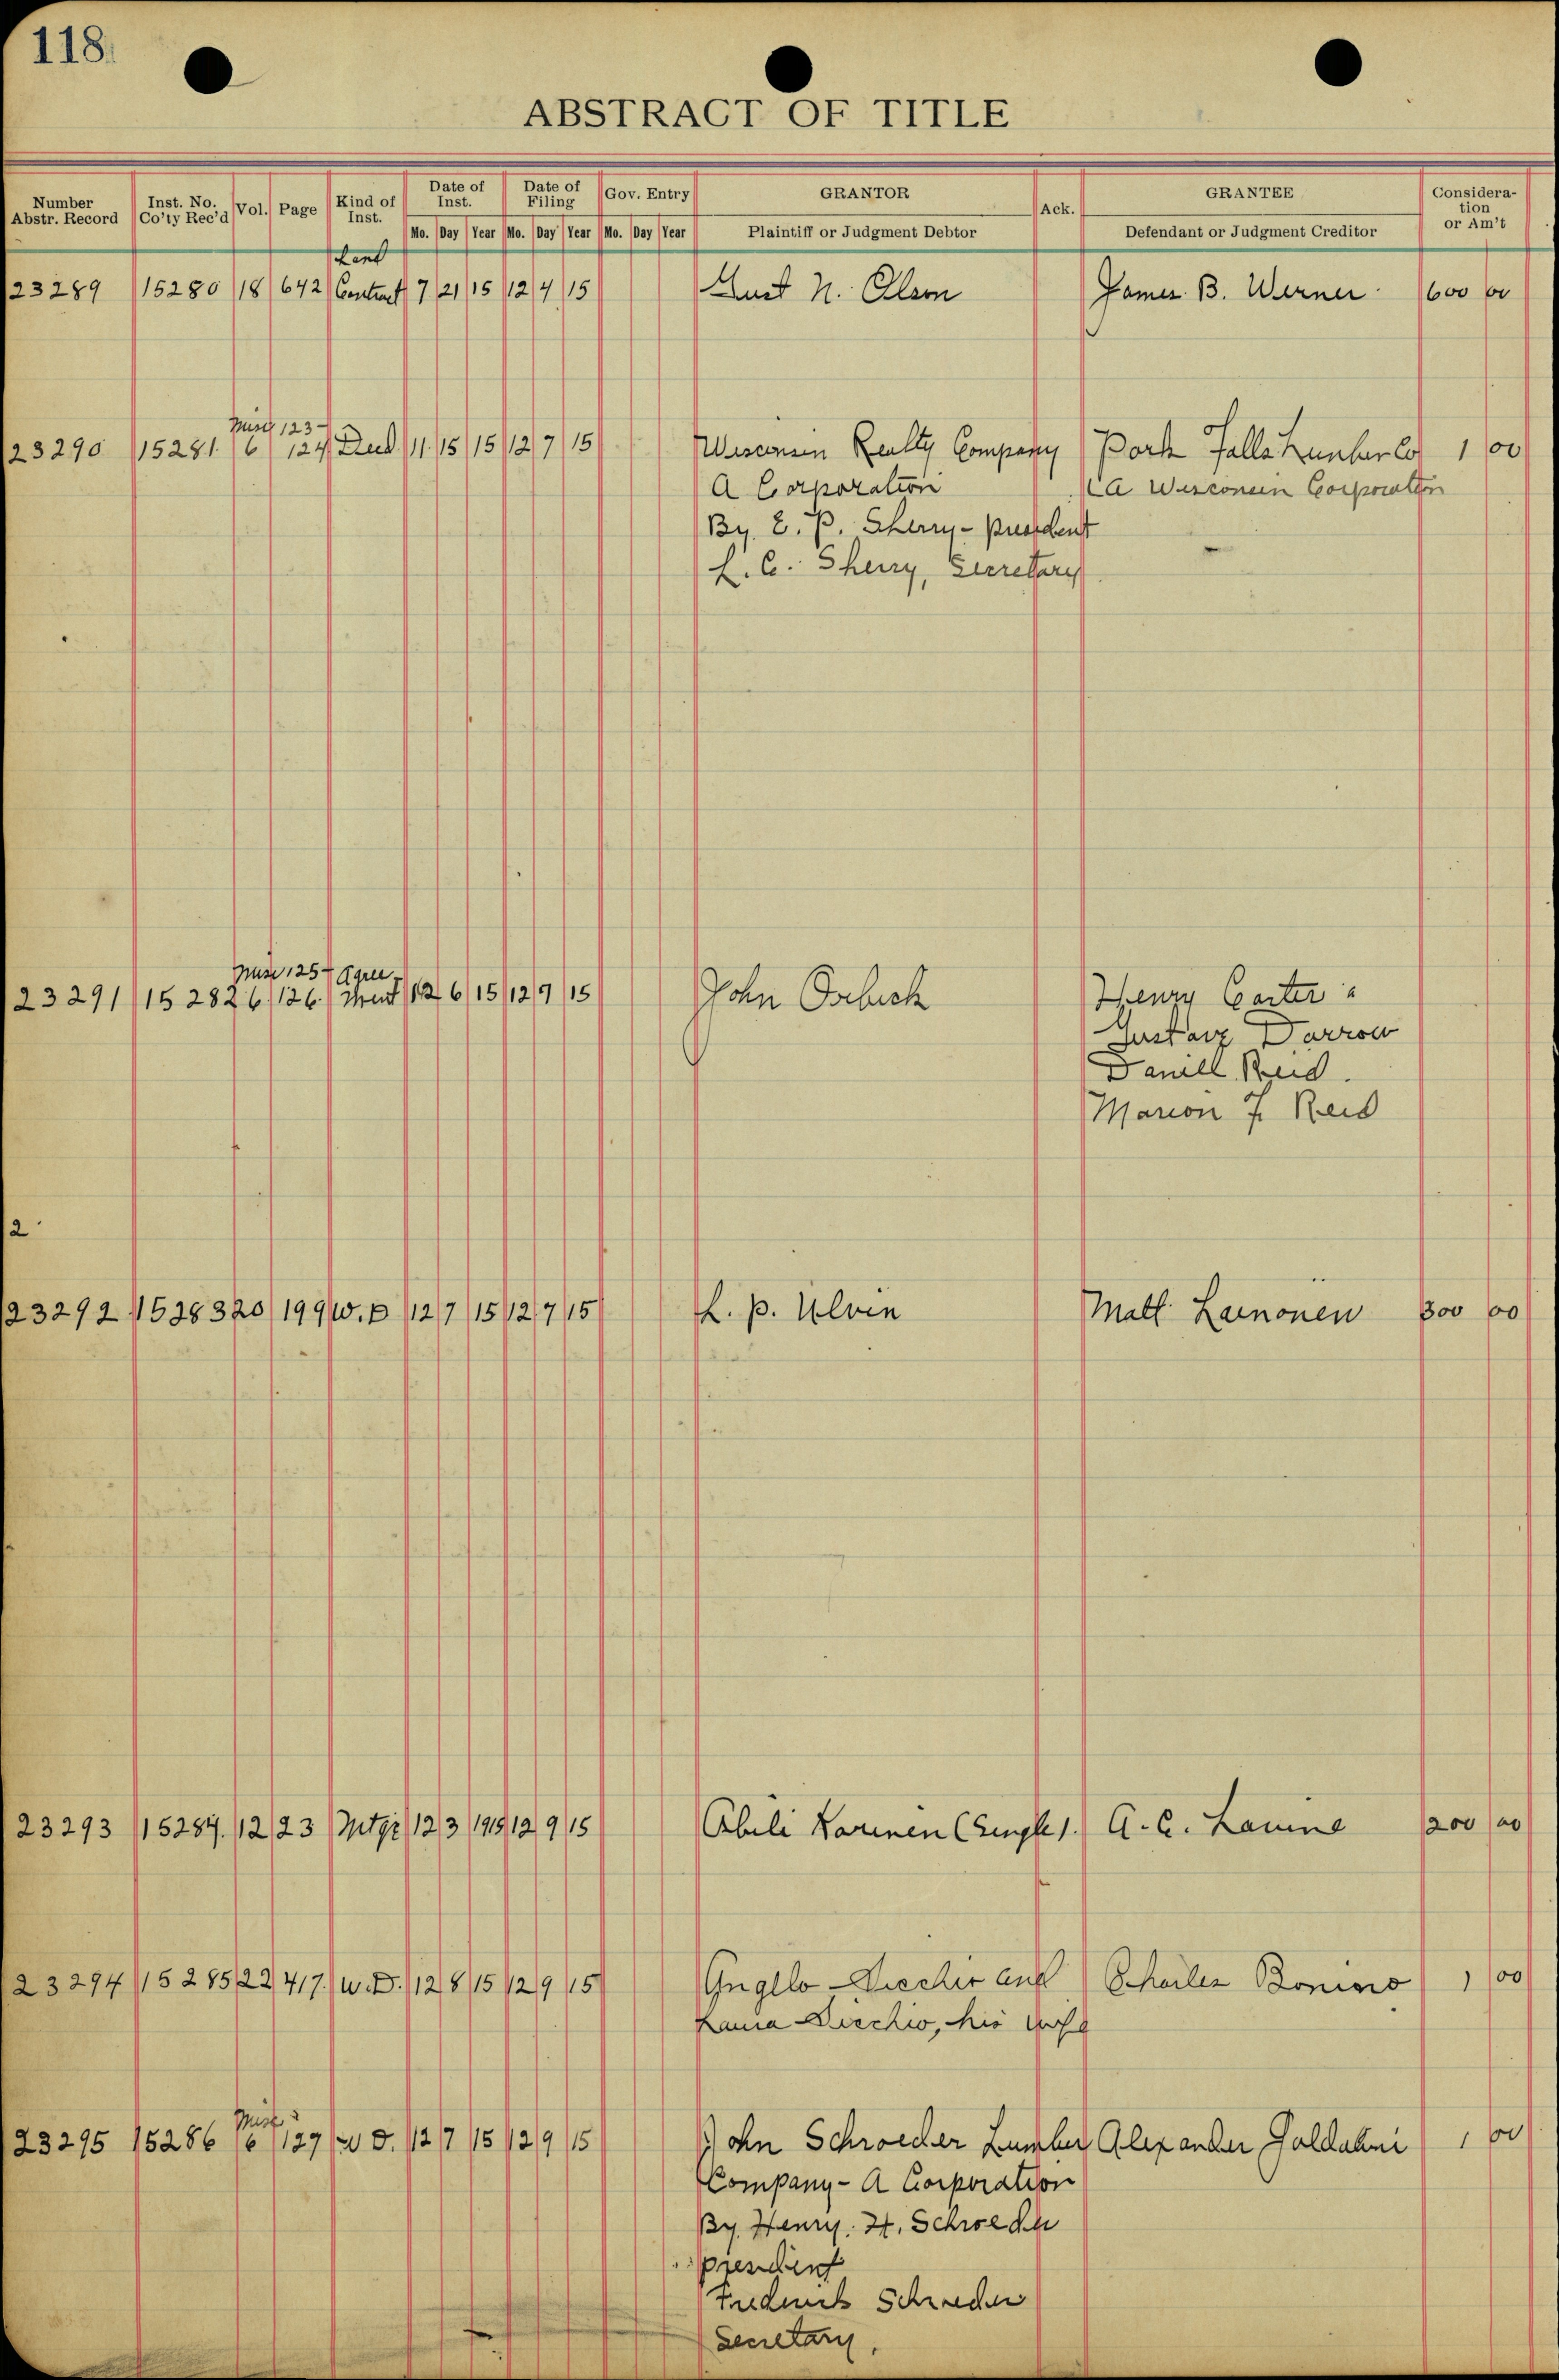 118
ABSTRACT OF TITLE
Number Abstr. Record Inst. No. Co'ty Rec'd Vol. Page Kind of Inst. Date of Inst. Date of Filing Gov. Entry GRANTOR Ack. GRANTEE Consideration or Am't
Mo. Day Year Mo. Day Year Mo. Day Year Plaintiff or Judgment Debtor Defendant or Judgment Creditor
Land
23289 15280 18 642 Contract 7 21 15 12 4 15 Gust N. Olson James B. Werner 600 00
Misc 123-
23290 15281 6 124 Deed 11 15 15 12 7 15 Wisconsin Realty Company Park Falls Lumber Co 1 00
A Corporation A Wisconsin Corporation
By E. P. Sherry - president
L. C. Sherry, Secretary
Misc 125- Agree
23291 15282 6 126 ment 12 6 15 12 7 15 John Henry Carter
Gustav Darrow
Daniel Reid
Marion F. Reid
2
23292 15283 20 199 W. D 12 7 15 12 7 15 L. P. Ulvin Matt Lainonen 300 00
23293 15284 12 23 Mtge 12 3 1915 12 9 15 Abeli Karinen (Single). A. C. 200 00
23294 15285 22 417 W. D. 12 8 15 12 9 15 Angelo and Charles Bonino 1 00
Laura his wife
Misc
23295 15286 6 127 W D. 12 7 15 12 9 15 John Schroeder Lumber Alexander 1 00
Company - A Corporation
By Henry. H. Schroeder
president
Frederick Schroeder
Secretary.